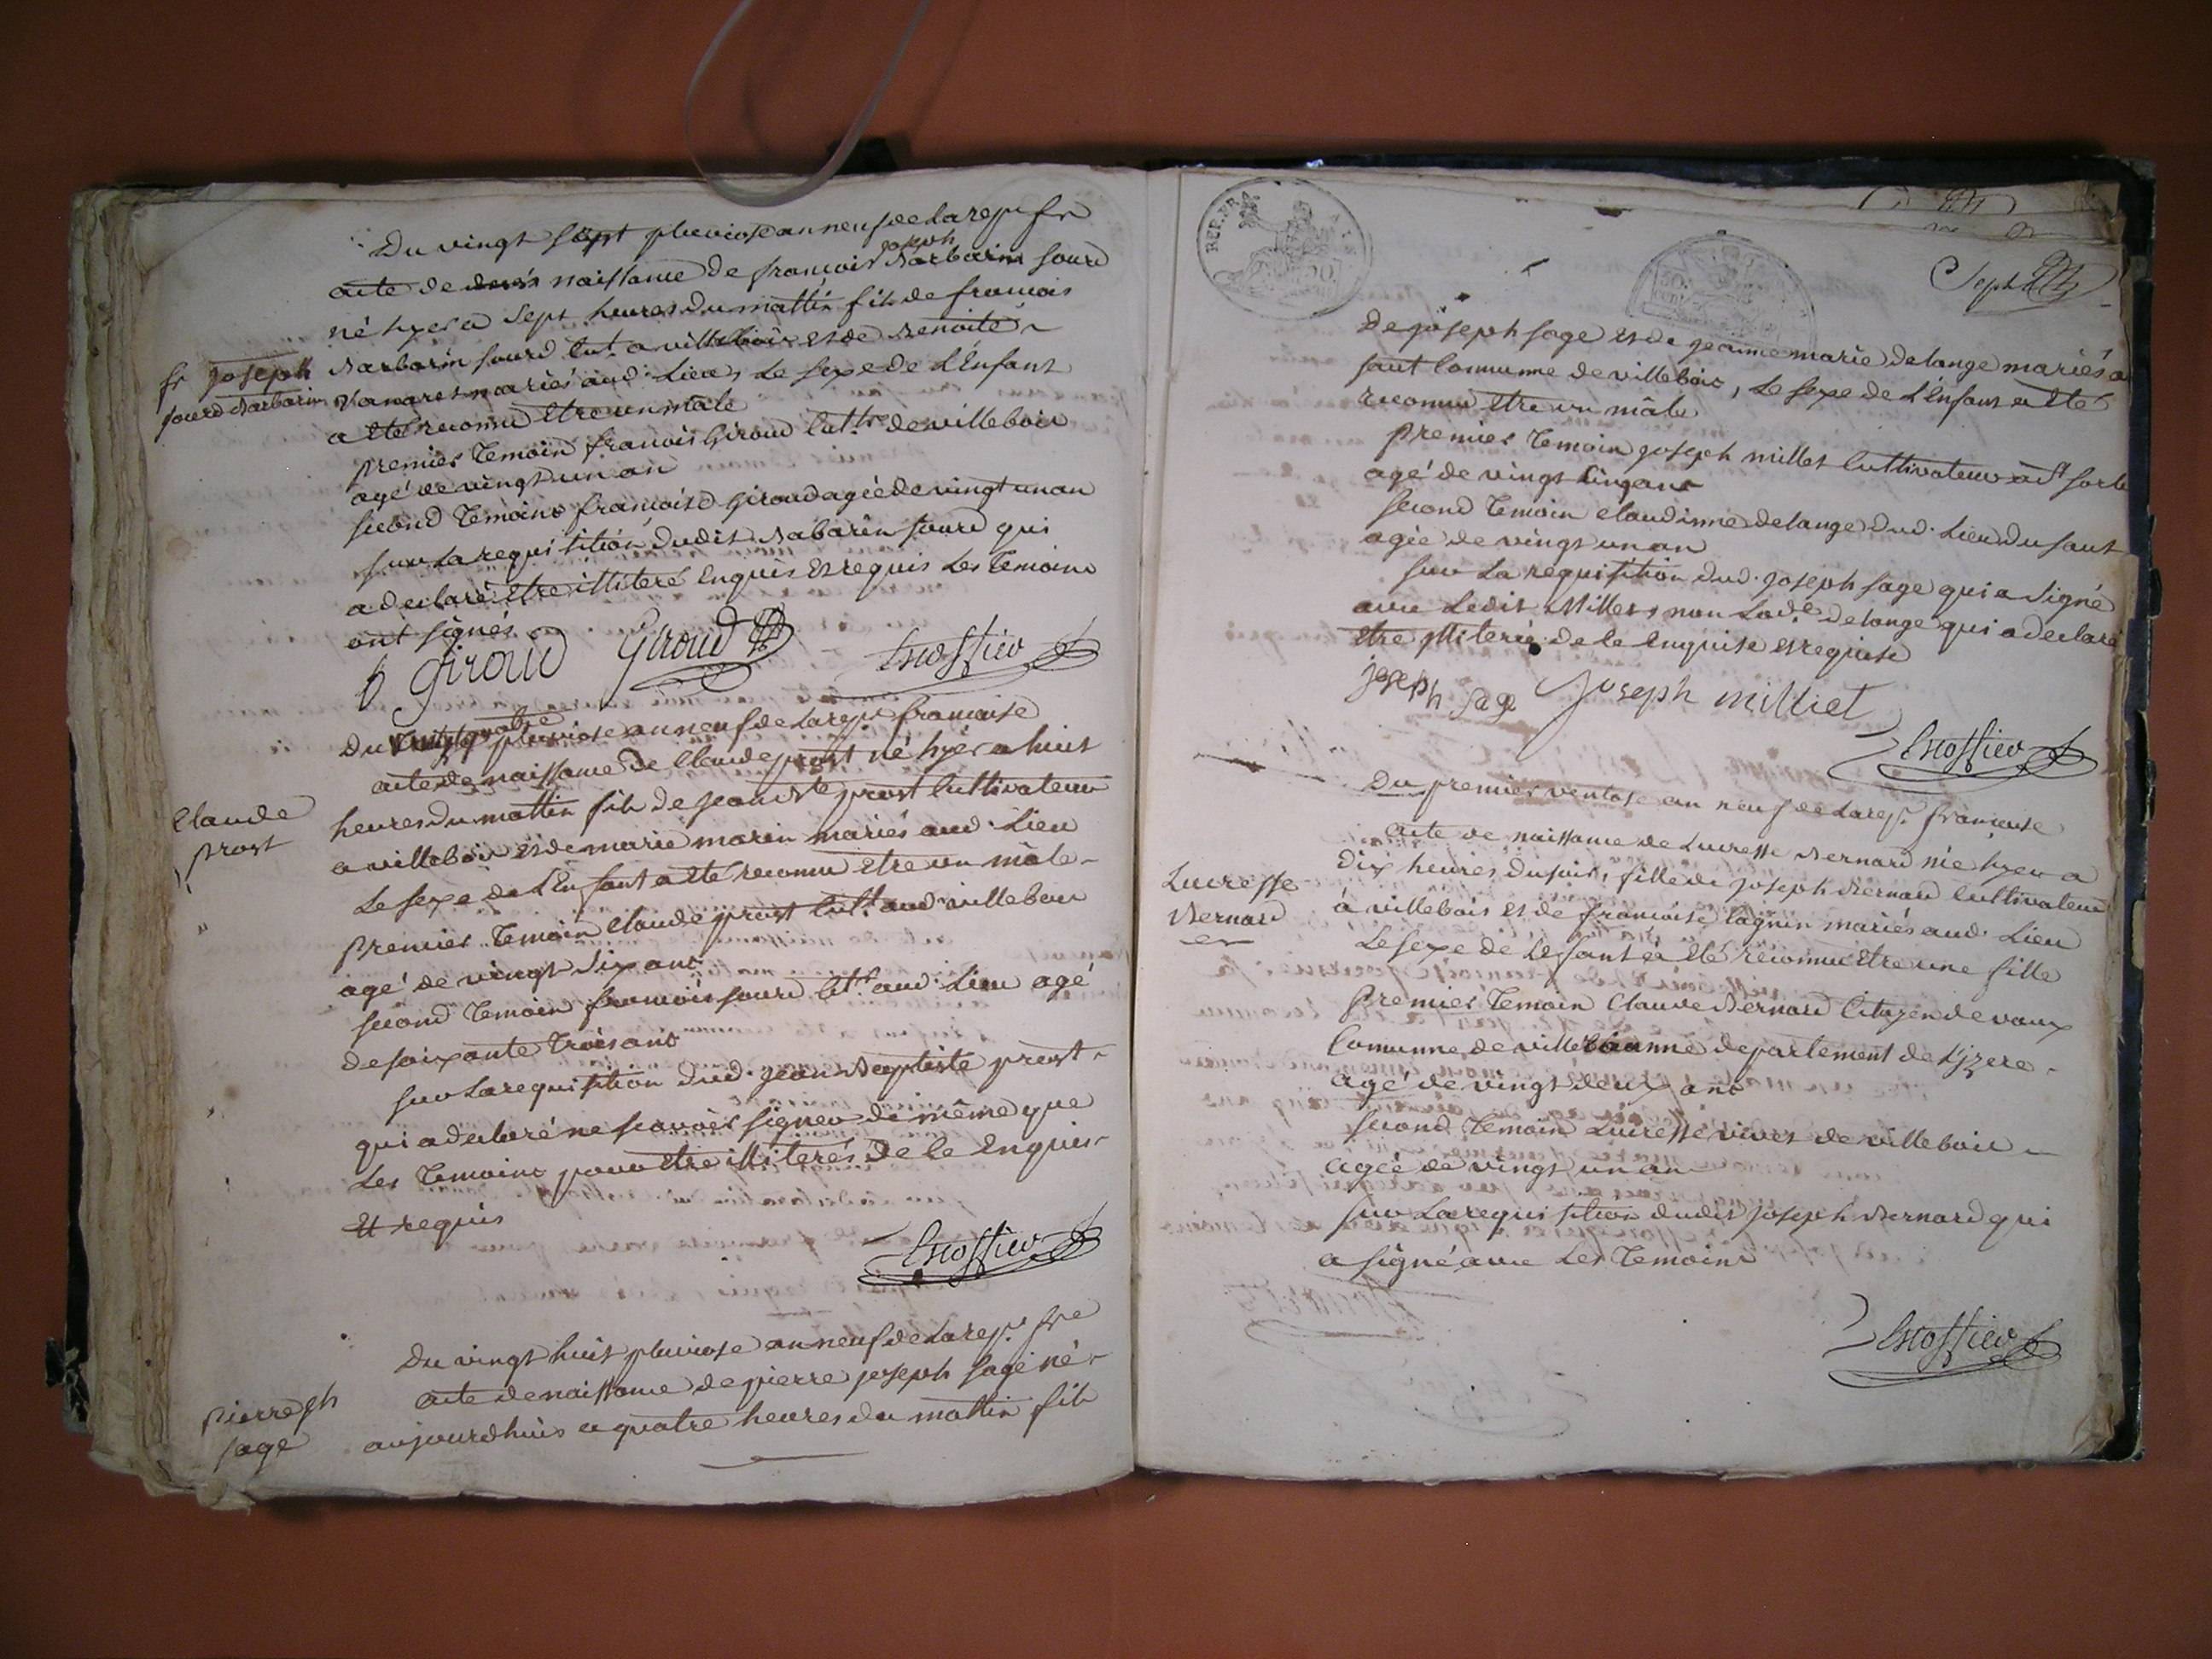 Du vingt sept pluviose an neuf de la rep. fr
acte de naissance de francois joseph Barbarin sourd
né hyer a sept heures du mattin fils de francois
fr joseph
sourd Barbarin
Barbarin sourd cult. a villebois et de Benoite
mariés aud. Lieu, Le sexe de L'Enfant
a eté reconnu etre un mâle
premier Temoin francois Giroud cult. de villebois
agé de vingt un an
second Temoins francoise Giroud agée de vingt un an
sur La requisition dudit Babarin sourd qui
a declaré etre illiteré Enquis et requis Les Temoins
ont signés
f Giroud Giroud Escoffier
Du vingt quatre pluviose an neuf de La rep. francaise
acte de naissance de Claude prost né hyer a huit
Claude
prost
heures du mattin fils de jean Bte prost Cultivateur
a villebois et de marie marin mariés aud. Lieu
Le sexe de L'Enfant a eté reconnu etre un mâle
Premier Temoin Claude prost cult. aud. villebois
agé de vingt six ans
second Temoin francois sourd clt. aud. Lieu agé
de soixante Trois ans
sur La requisition dud. jean Baptiste prost
qui a declaré ne scavoir signer de même que
Les Temoins pour etre illiterés de ce Enquis
Et requis
Escoffier
Du vingt huit pluviose an neuf de La rep. fre
acte de naissance de pierre joseph sage né
pierre jph
sage
aujourdhuis a quatre heures du mattin fils
REP. FR
Sept
De joseph sage et de jeanne marie delange mariés a
saut Commune de villebois, Le sexe de L'Enfant a eté
reconnu etre un mâle
premier Temoin joseph millet Cultivateur a St sorlin
agé de vingt cinq ans
second Temoin claudinne delange dud. Lieu du saut
agée de vingt un an
sur La requisition dud. joseph sage qui a signé
avec Ledit Millet, non Lade. delange qui a declaré
etre illiterée de ce Enquise et requise
joseph sage joseph milliet
Escoffier
Du premier ventose an neuf de La rep. francaise
acte de naissance de Lucresse Bernard née hyer a
dix heures du soir, fille de joseph Bernard Cultivateur
Lucresse
Bernard
à villebois et de francoise Cagnin mariés aud. Lieu
Le sexe de Lefant a eté reconnu etre une fille
Premier Temoin Claude Bernard Citoyen de vaux
Commune de villeurbanne departement de L'jzere
agé de vingt deux ans
second Temoin Lucresse vivet de villebois
agée de vingt un an
sur La requisition dudit joseph Bernard qui
a signé avec Les Temoins
Escoffier